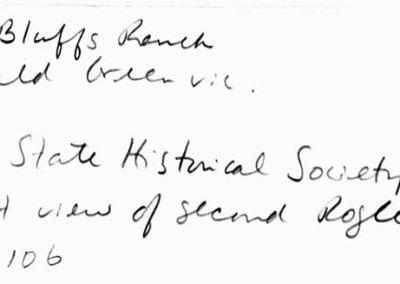 Bluffs Ranch
eld Green vic.
State Historical Society
t view of second Rogle
106